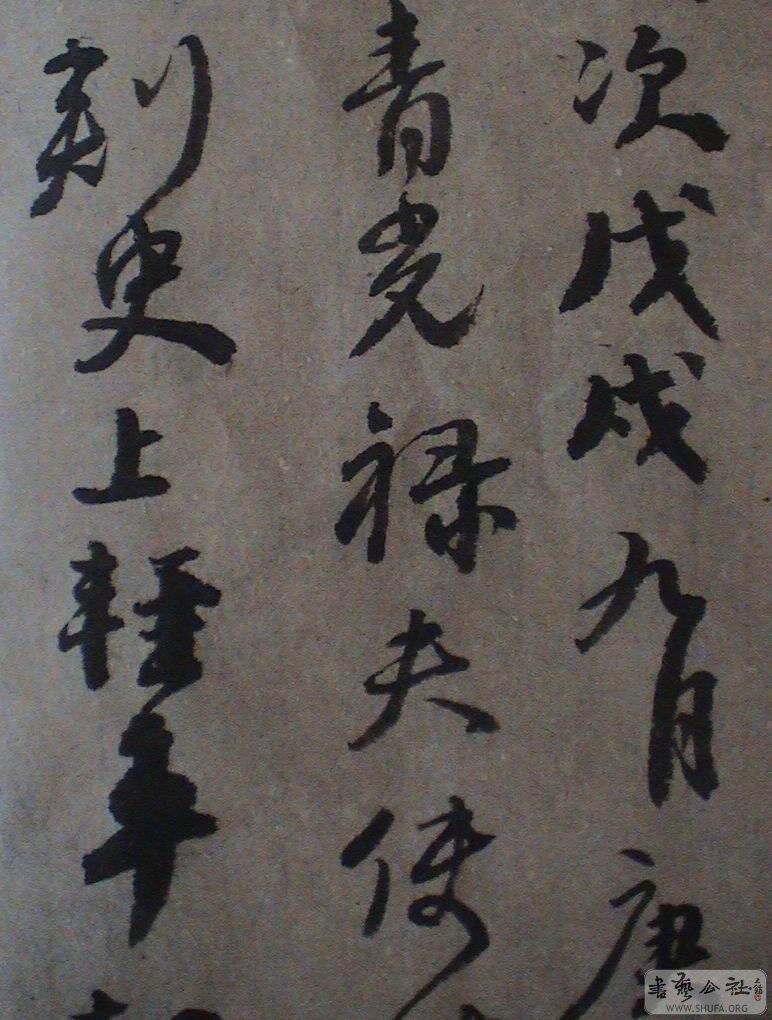 次戊戌九月庚
青光禄夫使
刺史上輕車
書藝公社
WWW.SHUFA.ORG